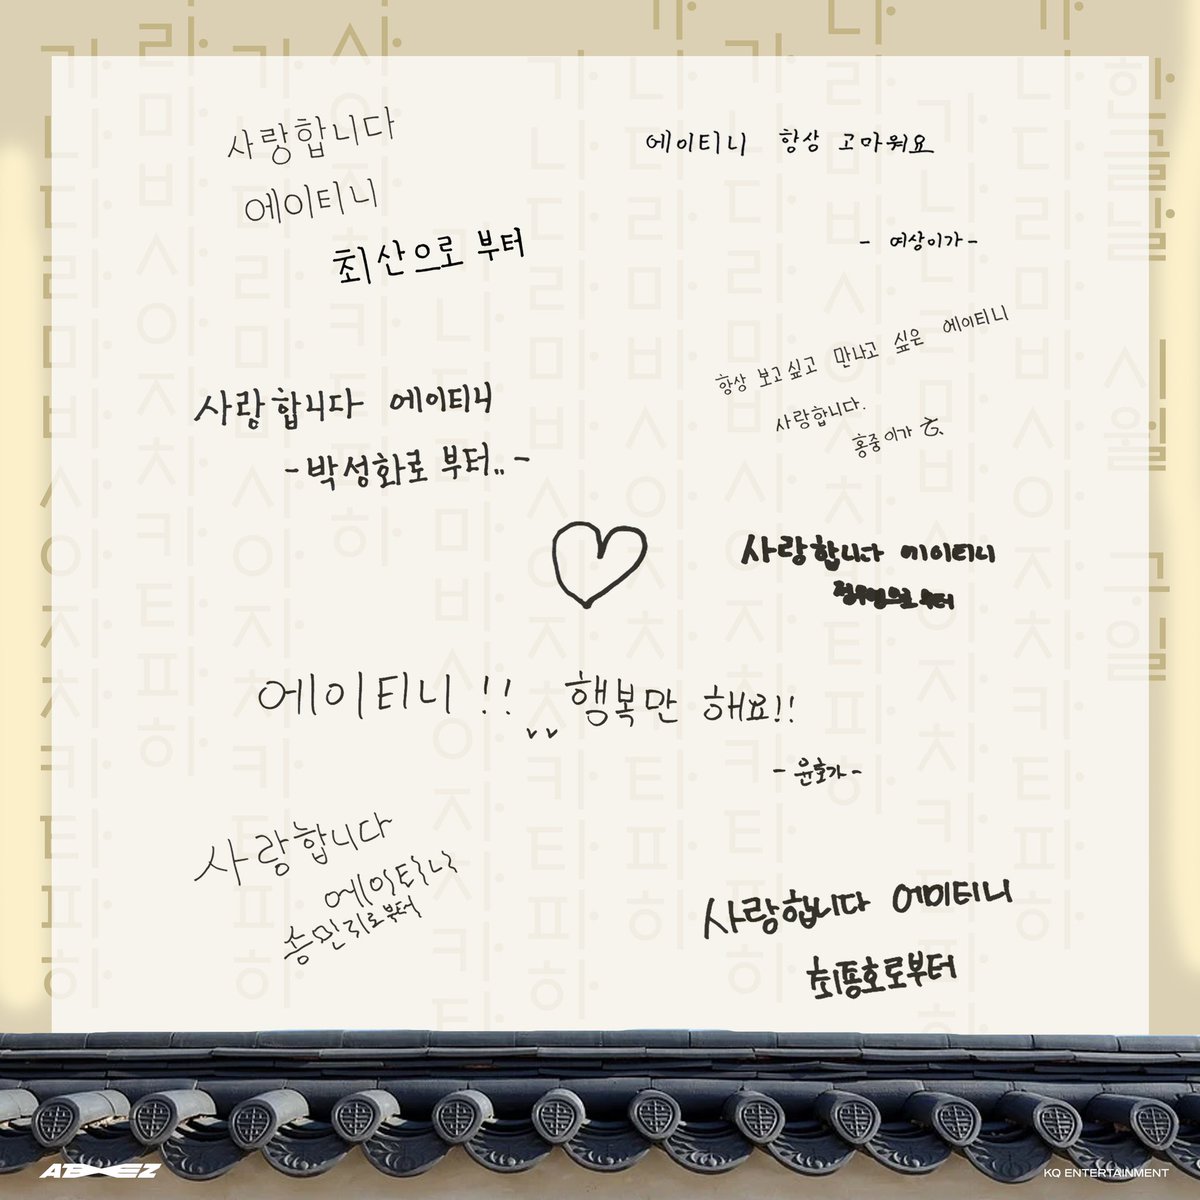 사랑합니다
에이티니
최산으로 부터
에이티니 항상 고마워요
- 여상이가 -
사랑합니다 에이티니
- 박성화로 부터.. -
항상 보고싶고 만나고 싶은 에이티니
사랑합니다.
홍중이가
사랑합니다 에이티니
정우영으로 부터
에이티니!! 행복만 해요!!
- 윤호가 -
사랑합니다
에이티니
송민기로부터
사랑합니다 에이티니
최종호로부터
한글날
시월 구일
ATEEZ
KQ ENTERTAINMENT